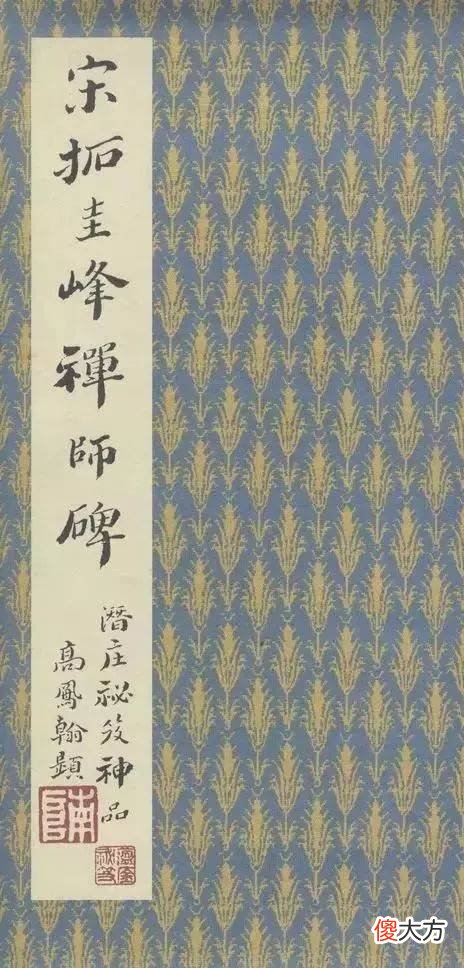 宋拓圭峰禪師碑
潛庄祕笈神品
高鳳翰題
傻大方